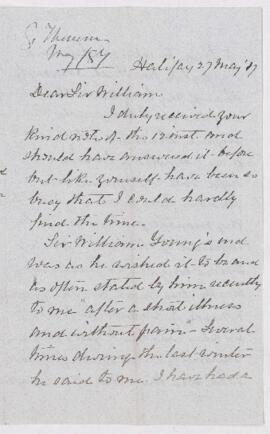 May /87
Halifax 27 May '87
Dear Sir William
I duly received your
kind note of the 12 inst. and
should have answered it before
but like yourself have been so
busy that I could hardly
find the time.
Sir William Young's end
was as he wished it to be and
as often stated by him recently
to me after a short illness
and without pain - Several
times during the last winter
he said to me I have had a